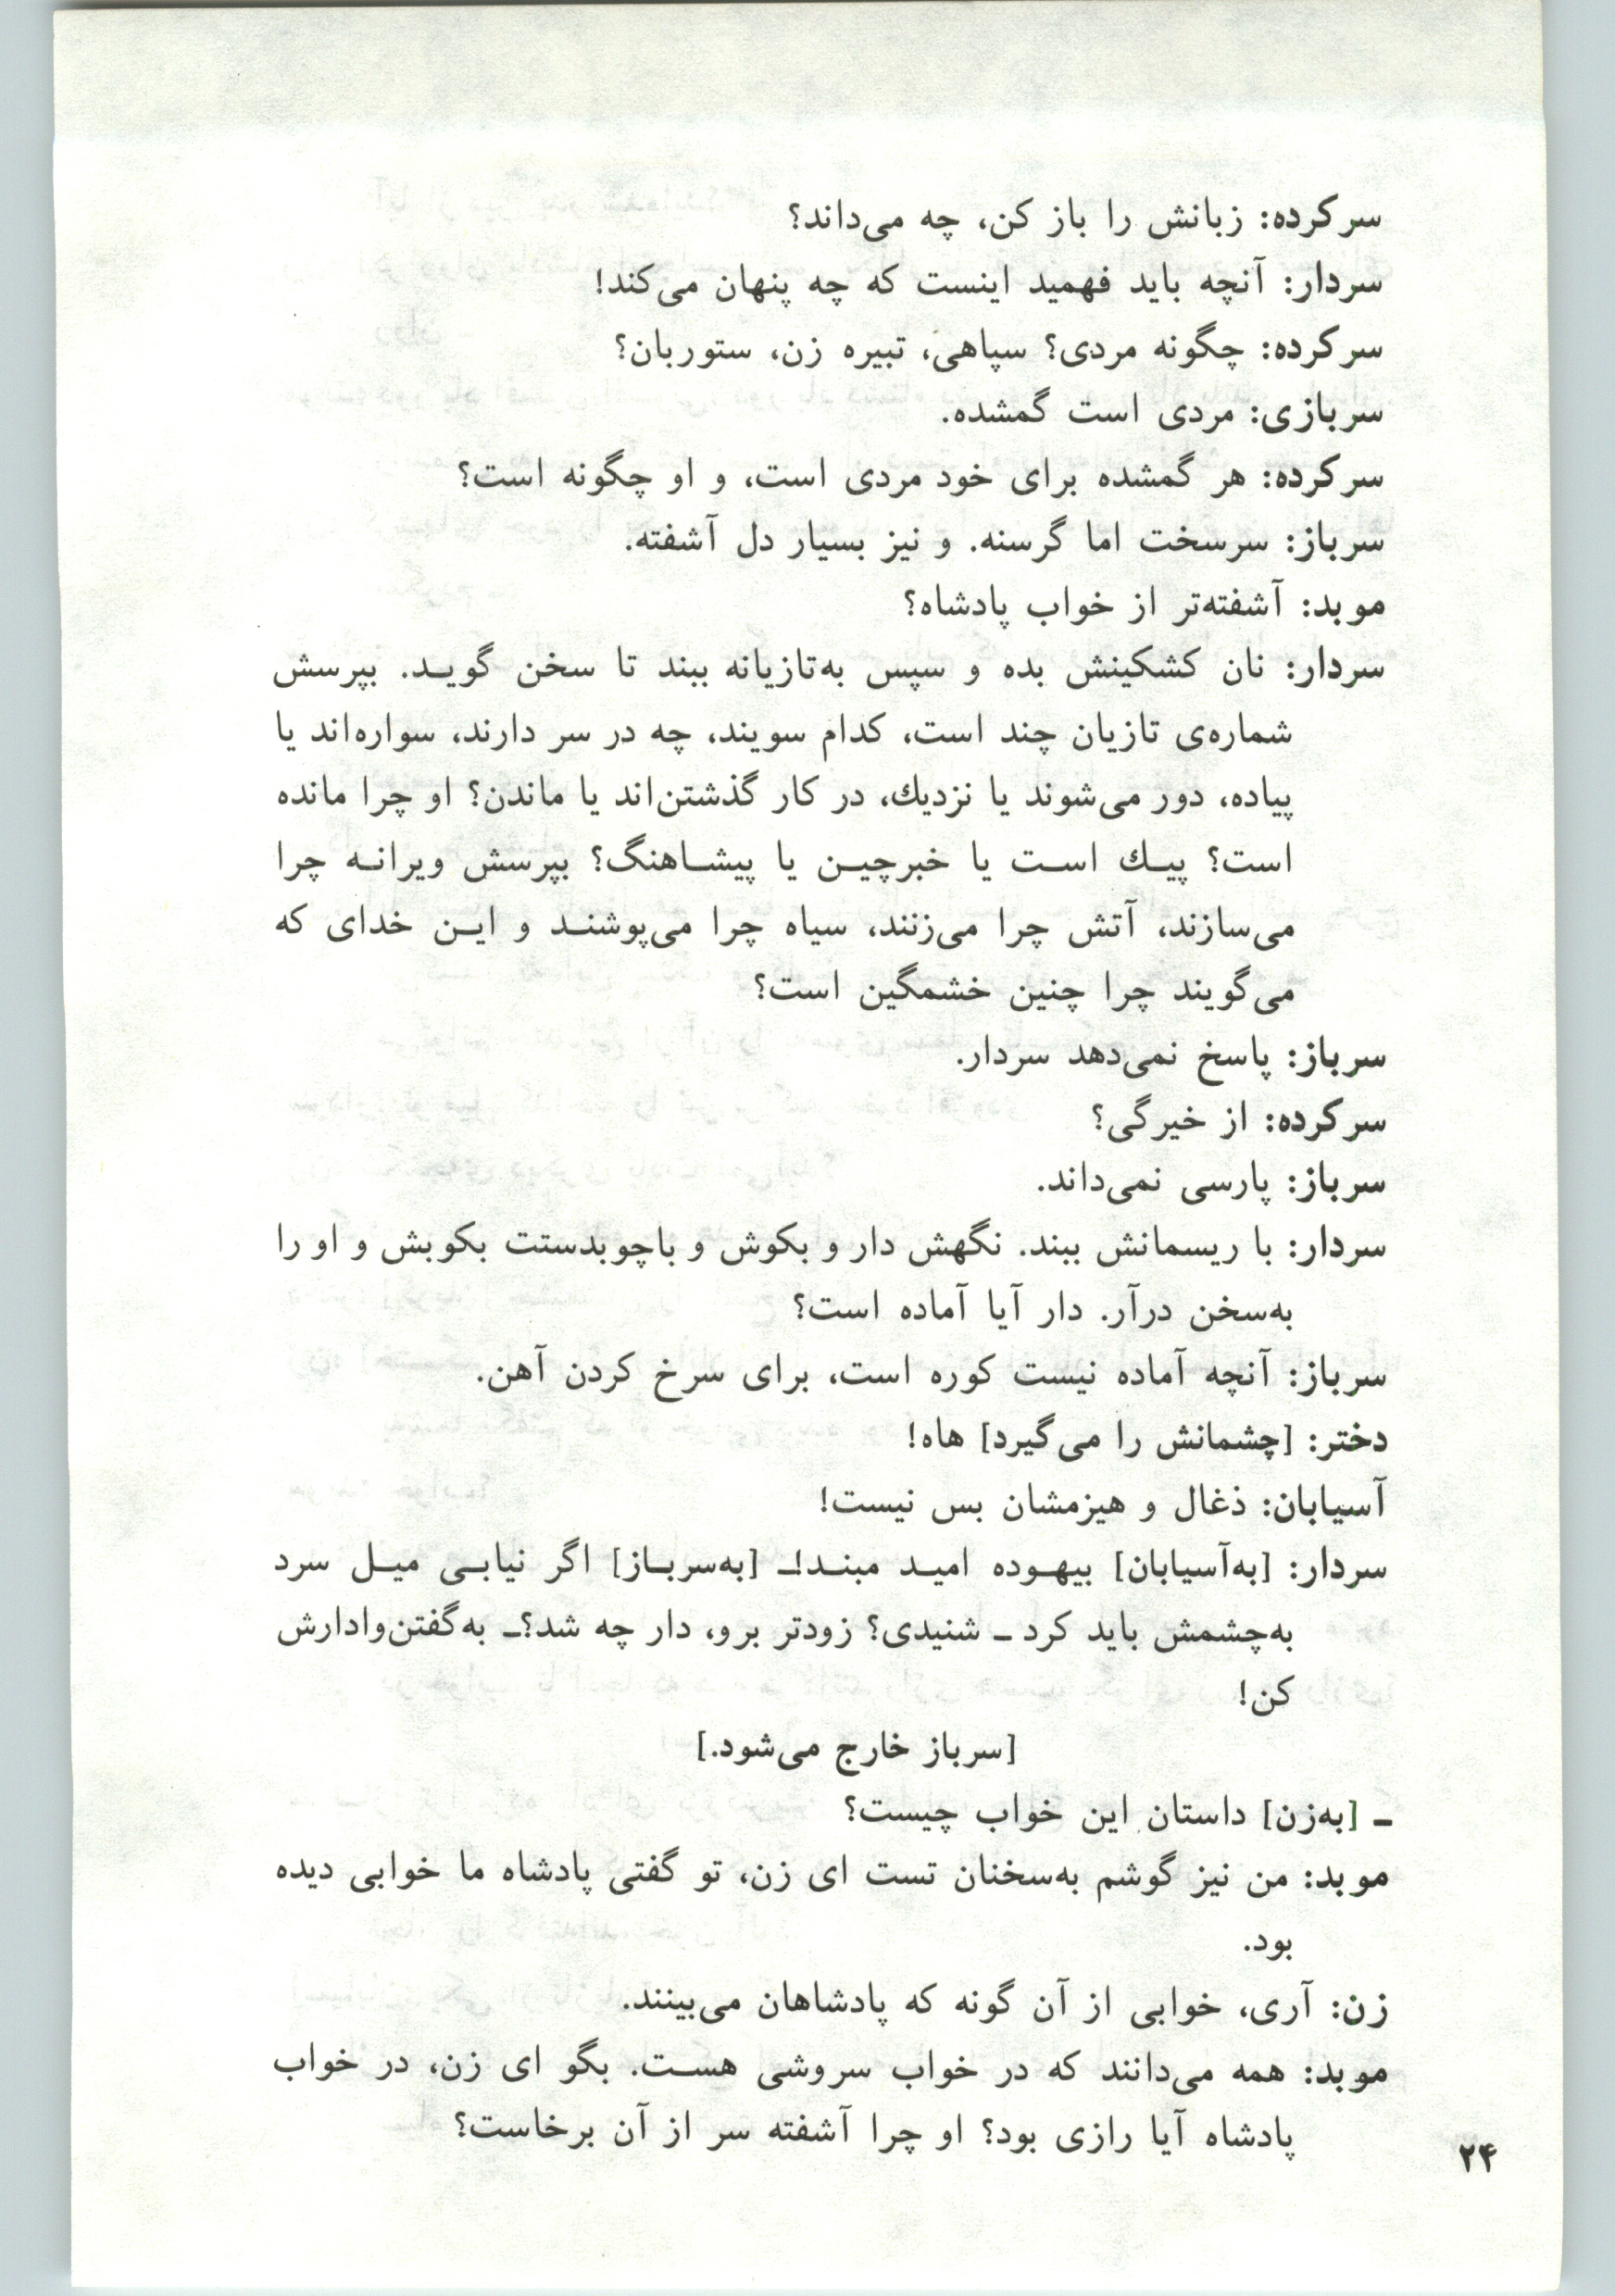 سرکرده: زبانش را باز کن، چه می‌داند؟
سردار: آنچه باید فهمید اینست که چه پنهان می‌کند!
سرکرده: چگونه مردی؟ سپاهی، تبیره زن، ستوربان؟
سربازی: مردی است گمشده.
سرکرده: هر گمشده برای خود مردی است، و او چگونه است؟
سرباز: سرسخت اما گرسنه. و نیز بسیار دل آشفته.
موبد: آشفته‌تر از خواب پادشاه؟
سردار: نان کشکینش بده و سپس به‌تازیانه ببند تا سخن گویـد. بپرسش
شماره‌ی تازیان چند است، کدام سویند، چه در سر دارند، سواره‌اند یا
پیاده، دور می‌شوند یا نزدیك، در کار گذشتن‌اند یا ماندن؟ او چرا مانده
است؟ پیـك اسـت یا خبرچیـن یا پیشـاهنگ؟ بپرسش ویرانـه چرا
می‌سازند، آتش چرا می‌زنند، سیاه چرا می‌پوشنـد و ایـن خدای که
می‌گویند چرا چنین خشمگین است؟
سرباز: پاسخ نمی‌دهد سردار.
سرکرده: از خیرگی؟
سرباز: پارسی نمی‌داند.
سردار: با ریسمانش ببند. نگهش دار و بکوش و باچوبدستت بکوبش و او را
به‌سخن درآر. دار آیا آماده است؟
سرباز: آنچه آماده نیست کوره است، برای سرخ کردن آهن.
دختر: [چشمانش را می‌گیرد] هاه!
آسیابان: ذغال و هیزمشان بس نیست!
سردار: [به‌آسیابان] بیهـوده امیـد مبنـد!ـ [به‌سربـاز] اگر نیابـی میـل سرد
به‌چشمش باید کرد ـ شنیدی؟ زودتر برو، دار چه شد؟ـ به‌گفتن‌وادارش
کن!
[سرباز خارج می‌شود.]
ـ [به‌زن] داستان این خواب چیست؟
موبد: من نیز گوشم به‌سخنان تست ای زن، تو گفتی پادشاه ما خوابی دیده
بود.
زن: آری، خوابی از آن گونه که پادشاهان می‌بینند.
موبد: همه می‌دانند که در خواب سروشی هسـت. بگو ای زن، در خواب
پادشاه آیا رازی بود؟ او چرا آشفته سر از آن برخاست؟
۲۴